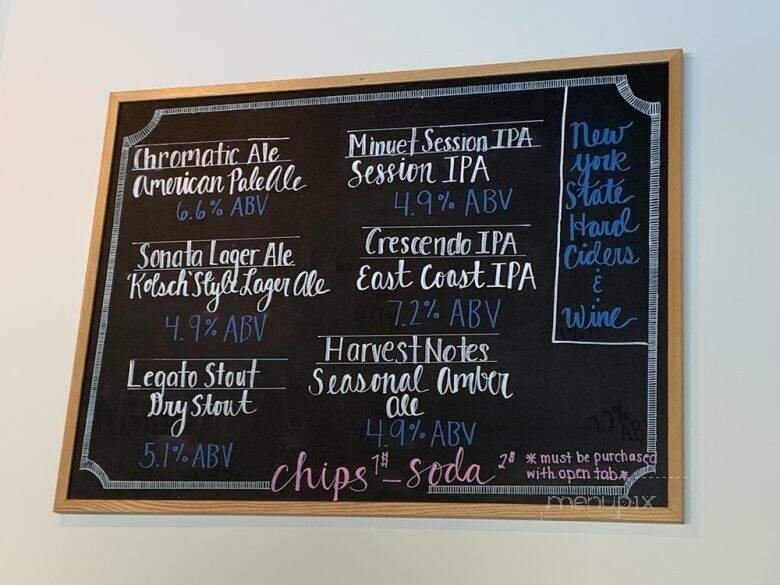 Chromatic Ale
American Pale Ale
6.6% ABV
Sonata Lager Ale
'Kolsch' Style Lager Ale
4.9% ABV
Legato Stout
Dry Stout
5.1% ABV
Minuet Session IPA
Session IPA
4.9% ABV
Crescendo IPA
East Coast IPA
7.2% ABV
Harvest Notes
Seasonal Amber
Ale
4.9% ABV
New
York
State
Hard
Ciders
&
Wine
7.2%
AB
chips 1$ - soda 2$
* must be purchased
with open tab *
menupix